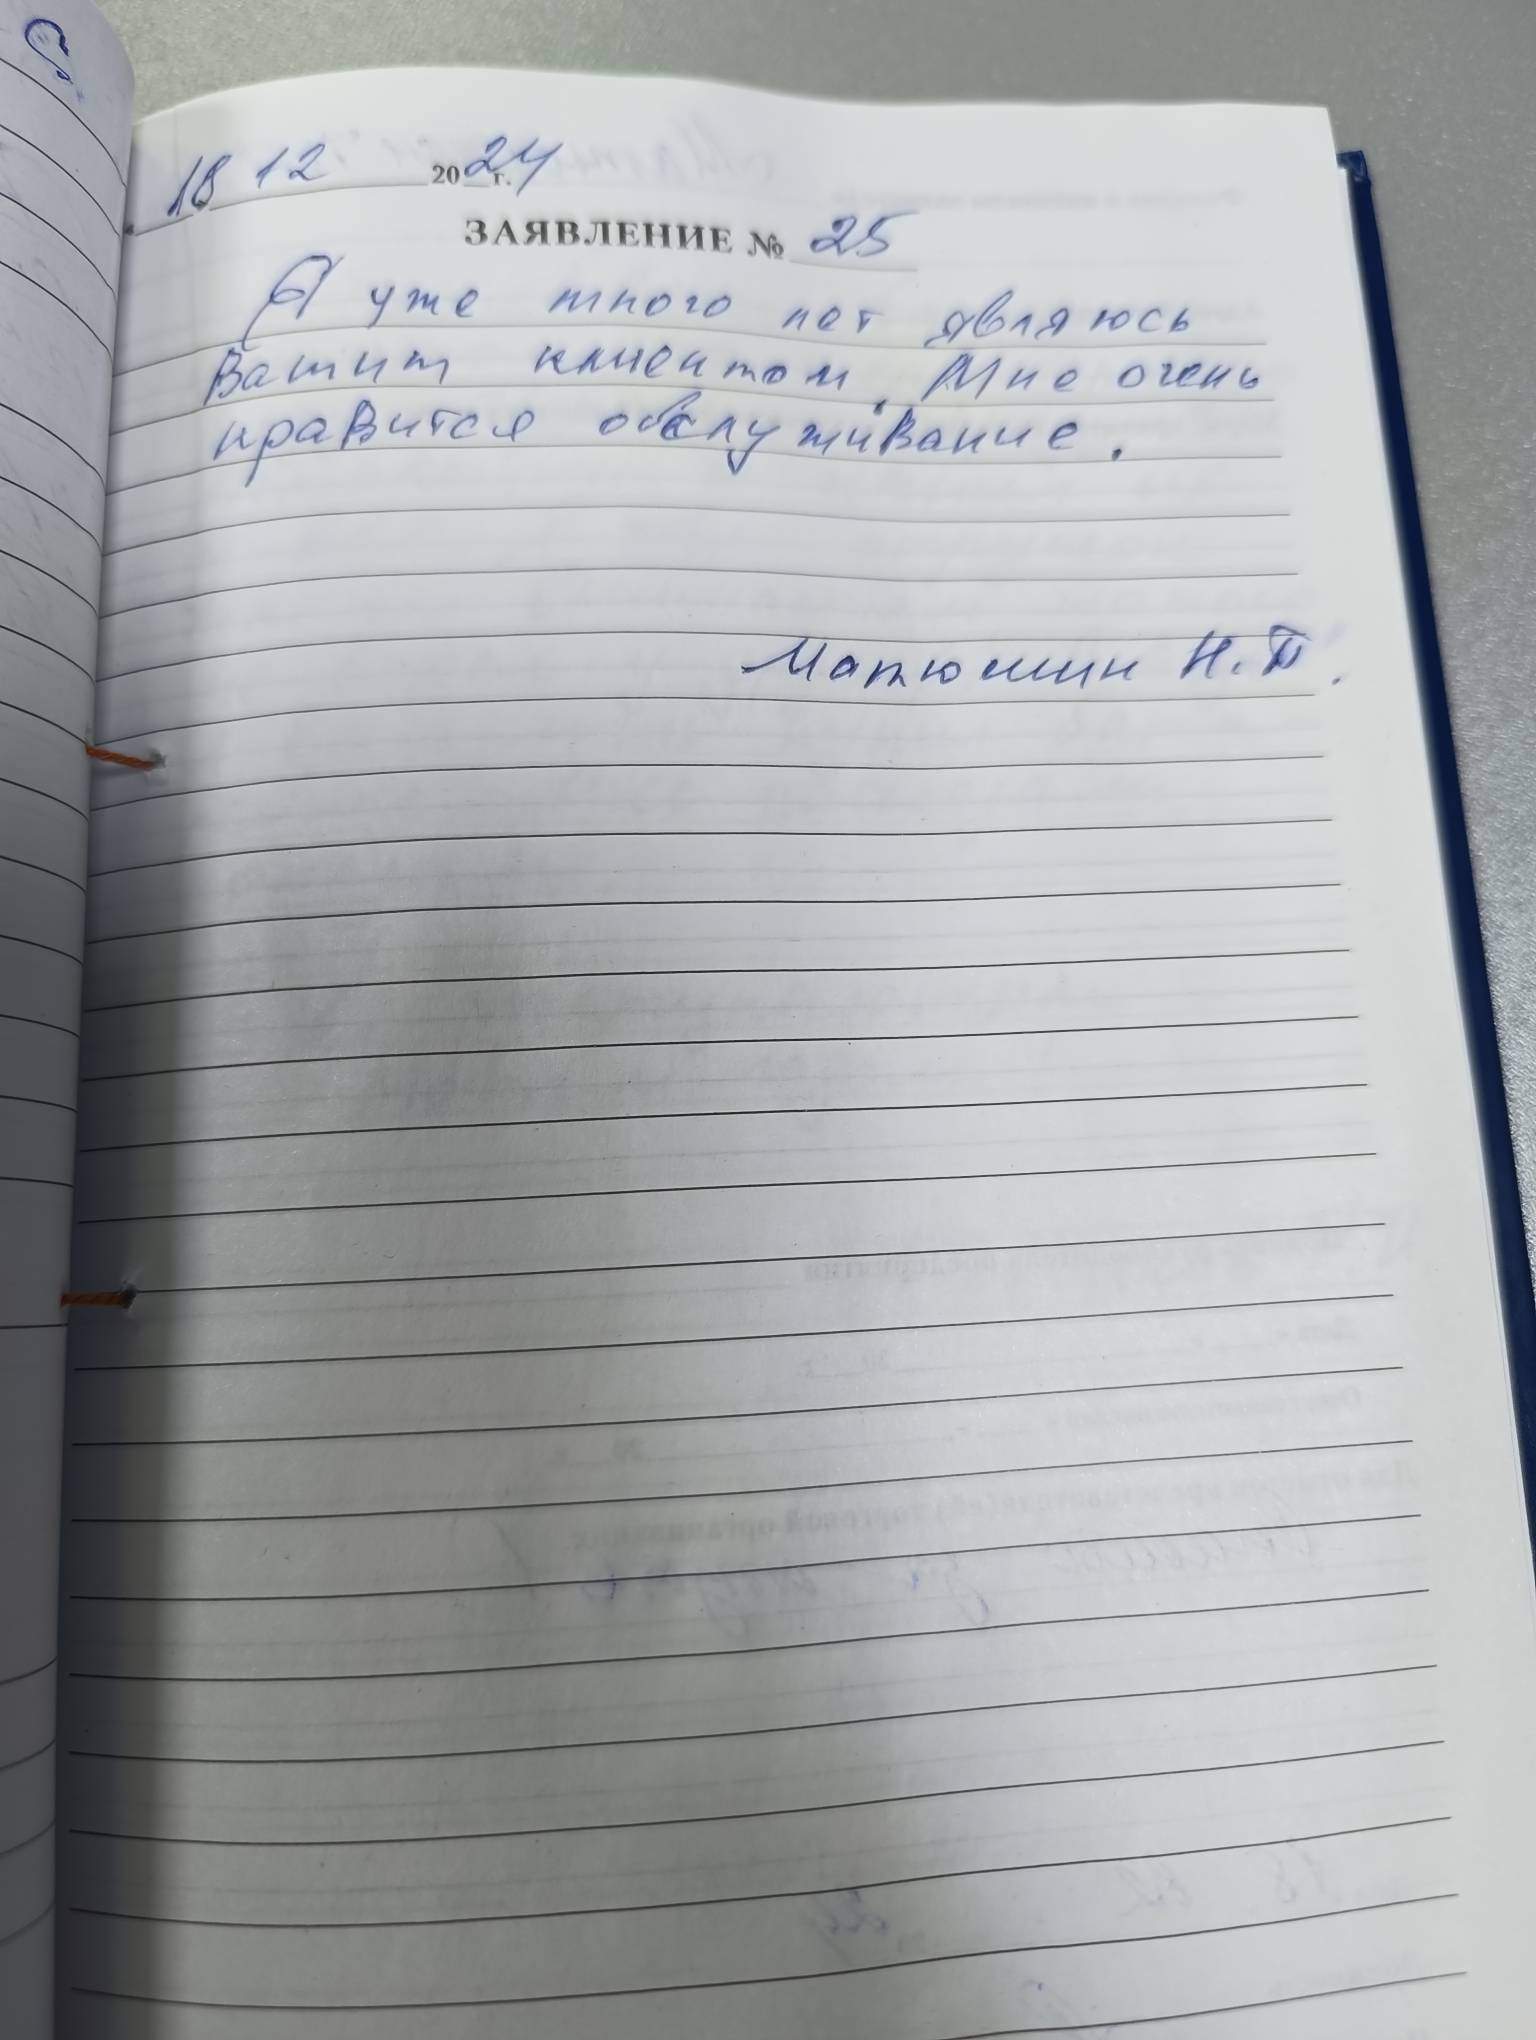 18 12 2024 г.
ЗАЯВЛЕНИЕ № 25
Я уже много лет являюсь
Вашим клиентом. Мне очень
нравится обслуживание.
Матюшин Н.П.